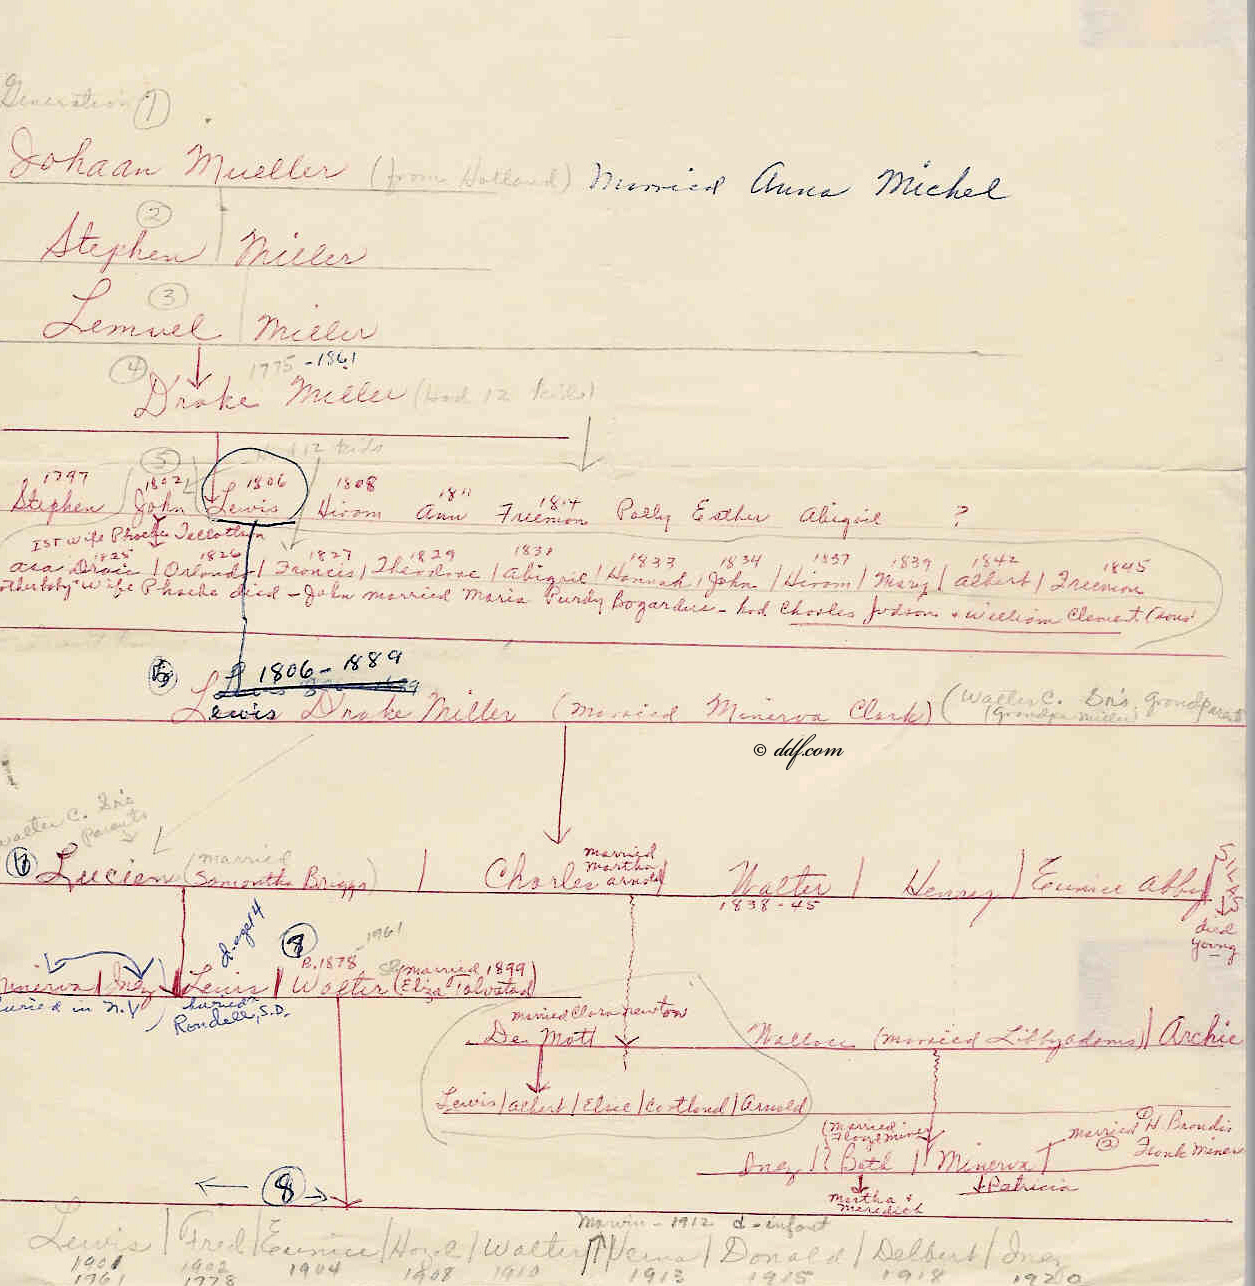 Generation 1
Johaan Mueller (from Holland) Married Anna Michel
2
Stephen Miller
3
Lemuel Miller
1775 - 1861
4
Drake Miller (Had 12 kids)
5 12 kids
1797 1802 1806 1808 1811 1814
Stephen John Lewis Hiram Ann Freeman Polly Esther Abigail ?
1st wife Phoebe
1825 1826 1827 1829 1831 1833 1834 1837 1839 1842 1845
Asa Drake | Orlando | Francis | Theodore | Abigail | Hannah | John | Hiram | Mary | Albert | Freeman
wife Phoebe died - John married Maria Purdy Bogardus - had Charles Judson + William Clement (sons)
5 1806 - 1889
Lewis Drake Miller (married Minerva Clark) (Walter C. Sr's Grandparents
(Grandpa Miller)
© ddf.com
Walter C. Sr's
Parents
6 Lucien (married Samantha Briggs) | Charles married Martha Arnold | Walter | Henry | Eunice Abby |
1838-45
died young
d-age 14
7 B. 1878 - 1961
Minerva | Inez | Lewis | Walter (married 1899 Eliza Tolvstad)
buried in N.Y
buried Rondell, S.D.
married Clara Newton
De Mott Wallace (married Libby Adams) | Archie
Lewis | Albert | Elsie | Cortland | Arnold
(married Floyd Miner
Inez | ? Beth | Minerva married H. Brandis
2 Frank Miner
Martha & Meredith
Patricia
8
Marvin - 1912 d - infant
Lewis | Fred | Eunice | Hazel | Walter | Verna | Donald | Delbert | Inez
1901 1902 1904 1908 1910 1913 1915 1918 1920
1961 1978